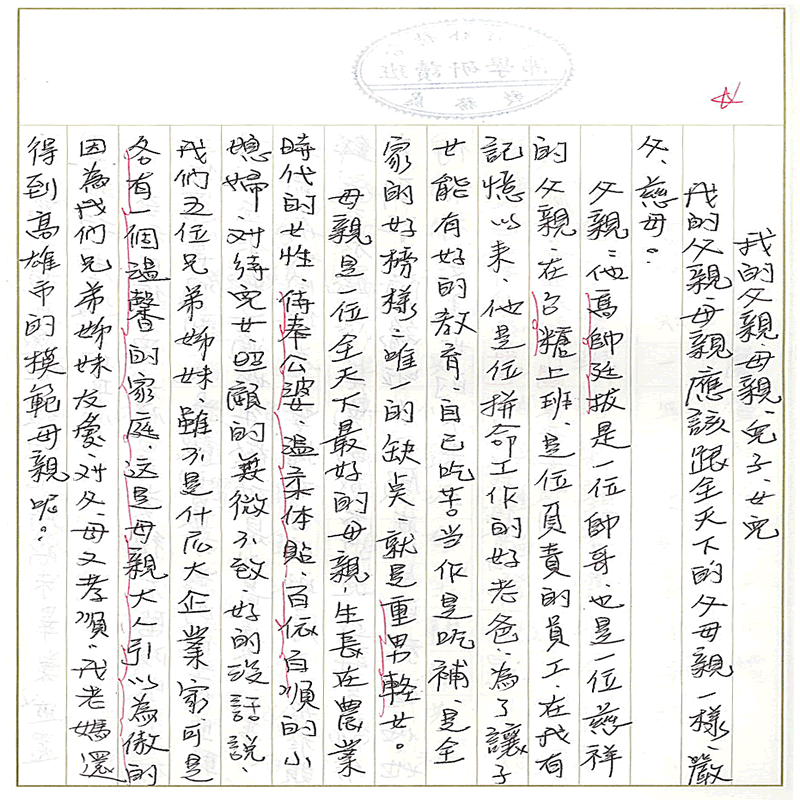 我的父親母親、兒子、女兒
我的父親、母親應該跟全天下的父母親一樣、嚴
父、慈母。
父親：他高帥挺拔是一位帥哥、也是一位慈祥
的父親、在台糖上班、是位負責的員工在我有
記憶以來、他是位拼命工作的好老爸、為了讓子
女能有好的教育、自己吃苦当作是吃補、是全
家的好榜樣：唯一的缺点、就是重男輕女。
母親是一位全天下最好的母親，生長在農業
時代的女性、侍奉公婆、溫柔体貼、百依百順的小
媳婦、対待兒女照顧的無微不致、好的沒話說、
我們五位兄弟姊妹、雖不是什広大企業家、可是
各有一個溫馨的家庭、這是母親大人引以為傲的
因為我們兄弟姊妹友愛、対父、母又孝順，我老媽還
得到高雄市的模範母親呢。
佛學研讀班
教務處